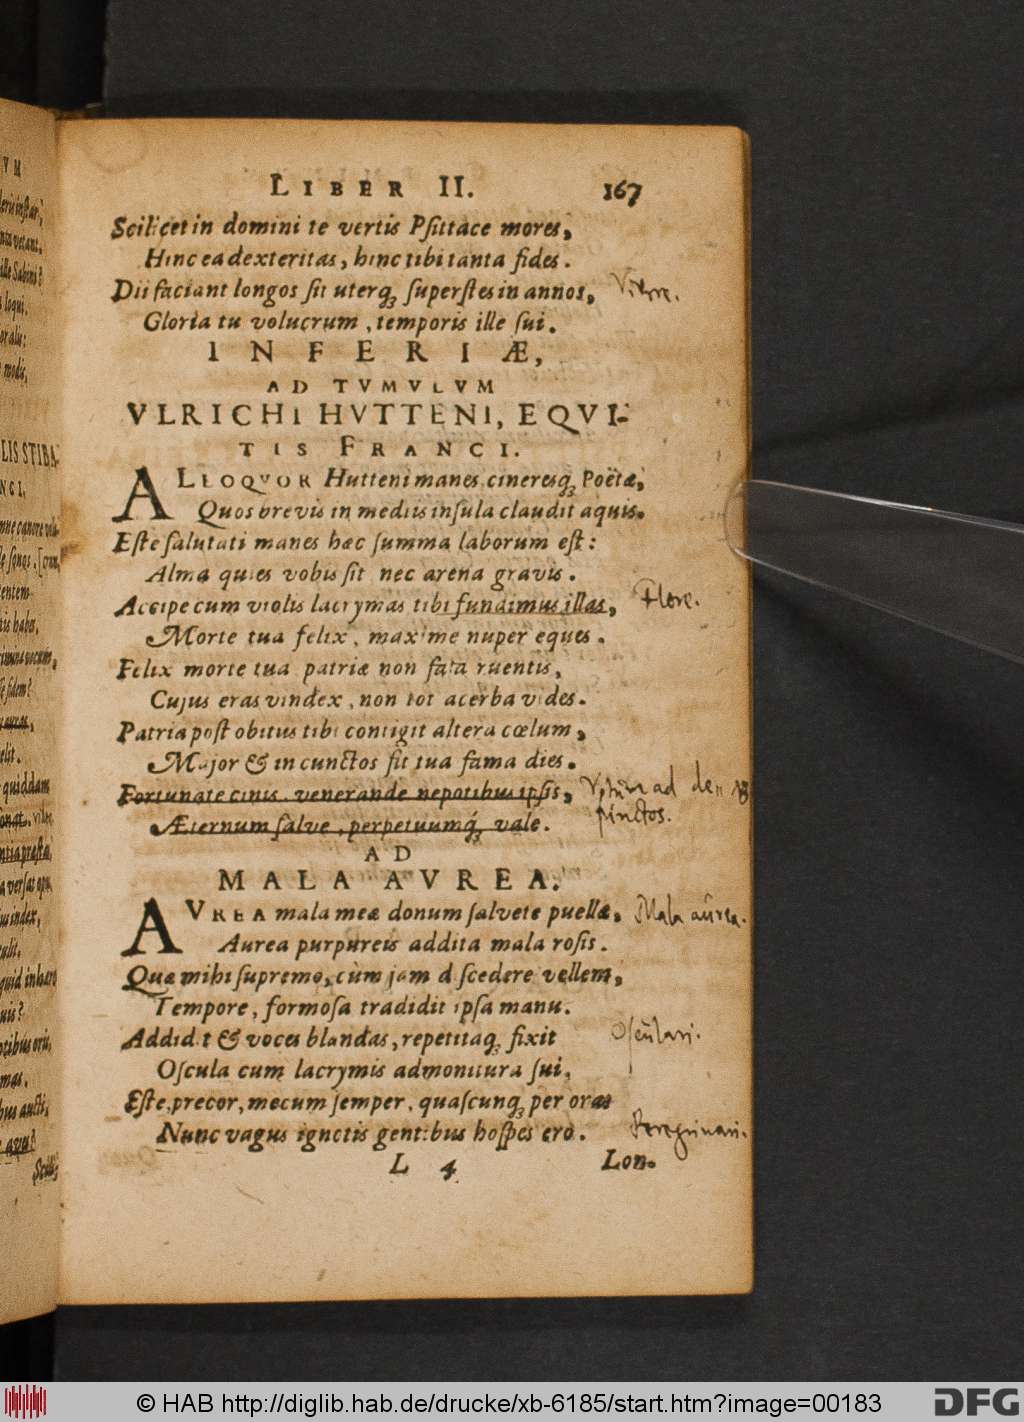 LIBER II. 167
Scilicet in domini te vertis Psittace mores,
Hinc ea dexteritas, hinc tibi tanta fides.
Dii faciant longos sit uterq; superstes in annos,
Gloria tu volucrum, temporis ille sui.
INFERIÆ,
AD TVMVLVM
VLRICHI HVTTENI, EQVI-
TIS FRANCI.
ALLOQVOR Hutteni manes cineresq; Poëtæ,
Quos brevis in mediis insula claudit aquis.
Este salutati manes hæc summa laborum est:
Alma quies vobis sit nec arena gravis.
Accipe cum violis lacrymas tibi fundimus illas, Flere.
Morte tua felix, maxime nuper eques.
Felix morte tua patriæ non fata ruentis,
Cujus eras vindex, non tot acerba vides.
Patria post obitus tibi contigit altera cœlum,
Major & in cunctos sit tua fama dies.
Fortunate cinis, venerande nepotibus ipsis,
Æternum salve, perpetuumq́; vale.
AD
MALA AVREA.
AVREA mala meæ donum salvete puellæ, Mala aurea.
Aurea purpureis addita mala rosis.
Quæ mihi supremo, cùm jam discedere vellem,
Tempore, formosa tradidit ipsa manu.
Addidit & voces blandas, repetitaq; fixit Osculari.
Oscula cum lacrymis admonitura sui,
Este, precor, mecum semper, quascunq; per oras
Nunc vagus ignotis gentibus hospes ero. Peregrinari.
L 4 Lon-
© HAB http://diglib.hab.de/drucke/xb-6185/start.htm?image=00183
DFG